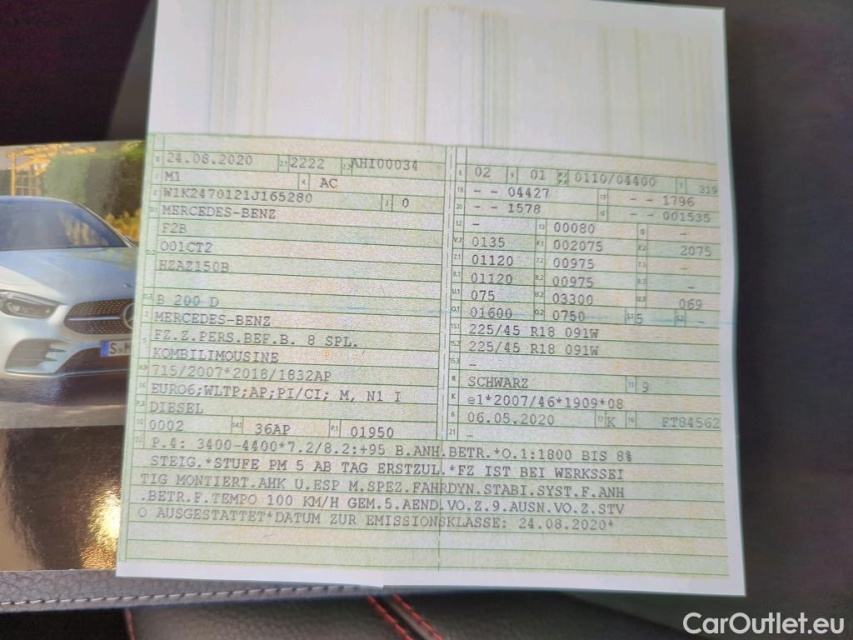 24.08.2020 2222 AHI00034
M1 AC
W1K2470121J165280 0
MERCEDES-BENZ
F2B
O01CT2
HZAZ150B
B 200 D
MERCEDES-BENZ
FZ.Z.PERS.BEF.B. 8 SPL.
KOMBILIMOUSINE
715/2007*2018/1832AP
EURO6;WLTP;AP;PI/CI; M, N1 I
DIESEL
0002 36AP 01950
02 01 0110/04400 319
- - 04427 - - 1796
- - 1578 - - 001535
- 00080 -
0135 002075 2075
01120 00975 -
01120 00975 -
075 03300 069
01600 0750 5 -
225/45 R18 091W
225/45 R18 091W
-
SCHWARZ 9
e1*2007/46*1909*08
06.05.2020 K FT84562
-
P.4: 3400-4400*7.2/8.2:+95 B.ANH.BETR.*O.1:1800 BIS 8%
STEIG.*STUFE PM 5 AB TAG ERSTZUL.*FZ IST BEI WERKSSEI
TIG MONTIERT.AHK U.ESP M.SPEZ.FAHRDYN.STABI.SYST.F.ANH
.BETR.F.TEMPO 100 KM/H GEM.5.AEND.VO.Z.9.AUSN.VO.Z.STV
O AUSGESTATTET*DATUM ZUR EMISSIONSKLASSE: 24.08.2020*
CarOutlet.eu